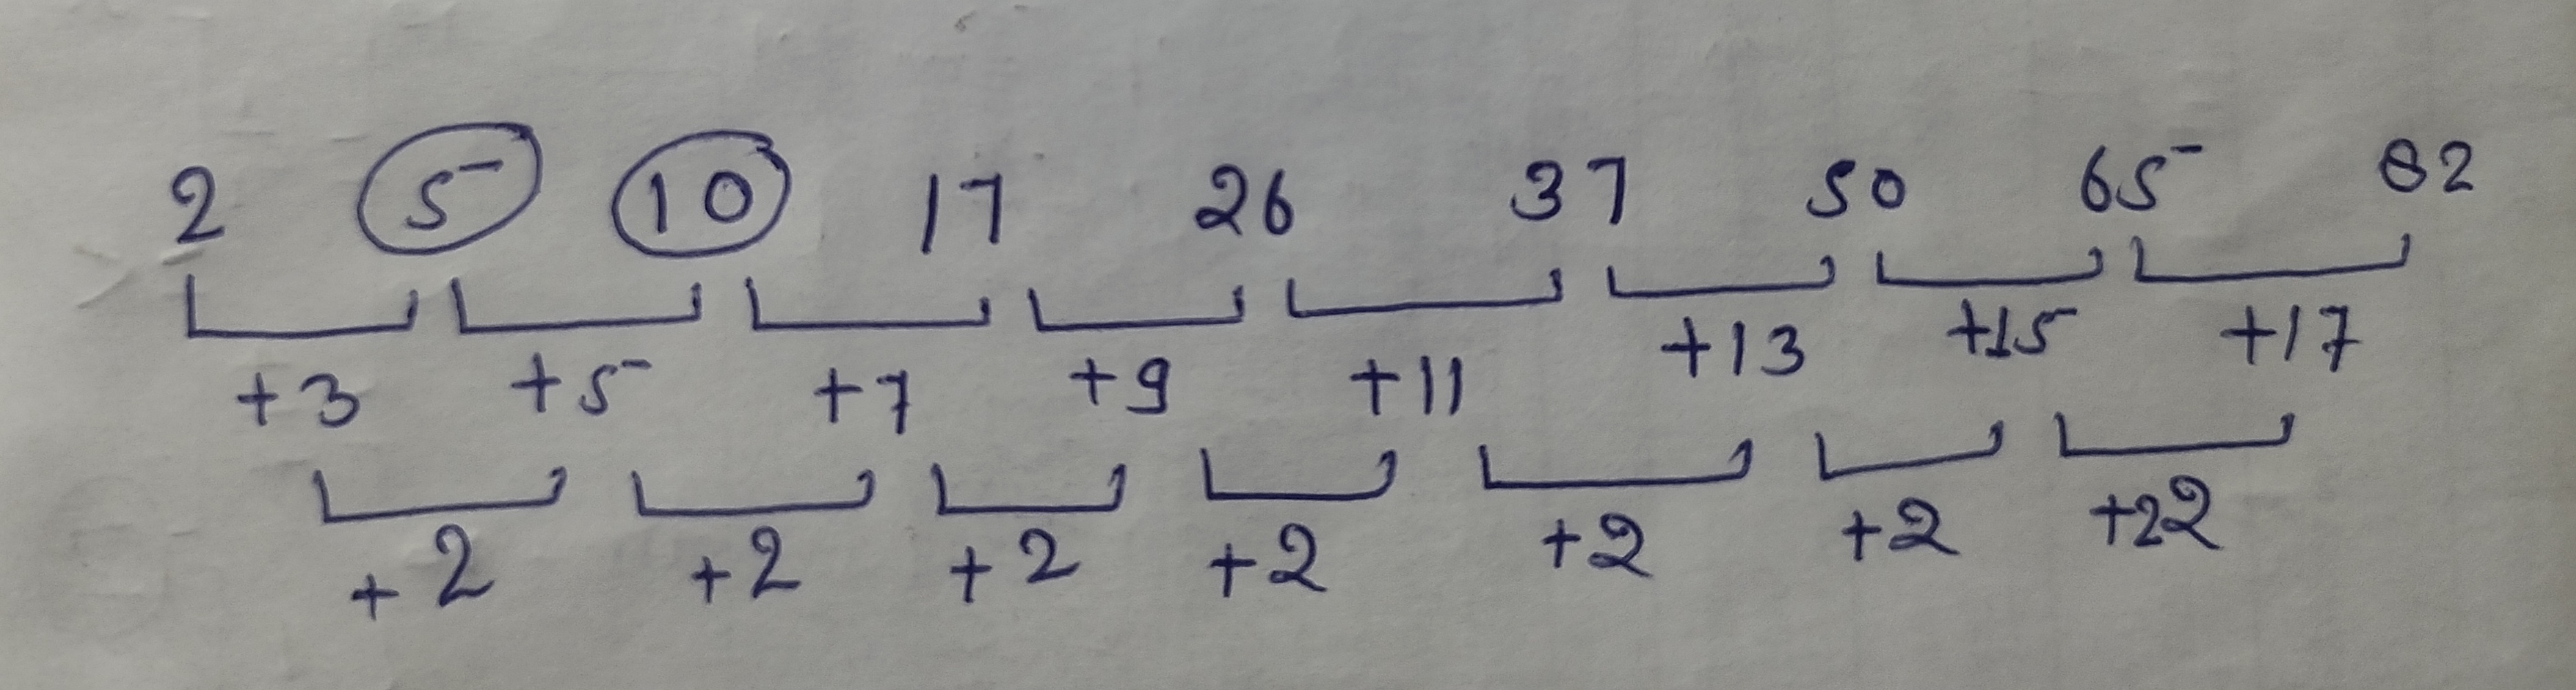 2 5 10 17 26 37 50 65 82
+3 +5 +7 +9 +11 +13 +15 +17
+2 +2 +2 +2 +2 +2 +22